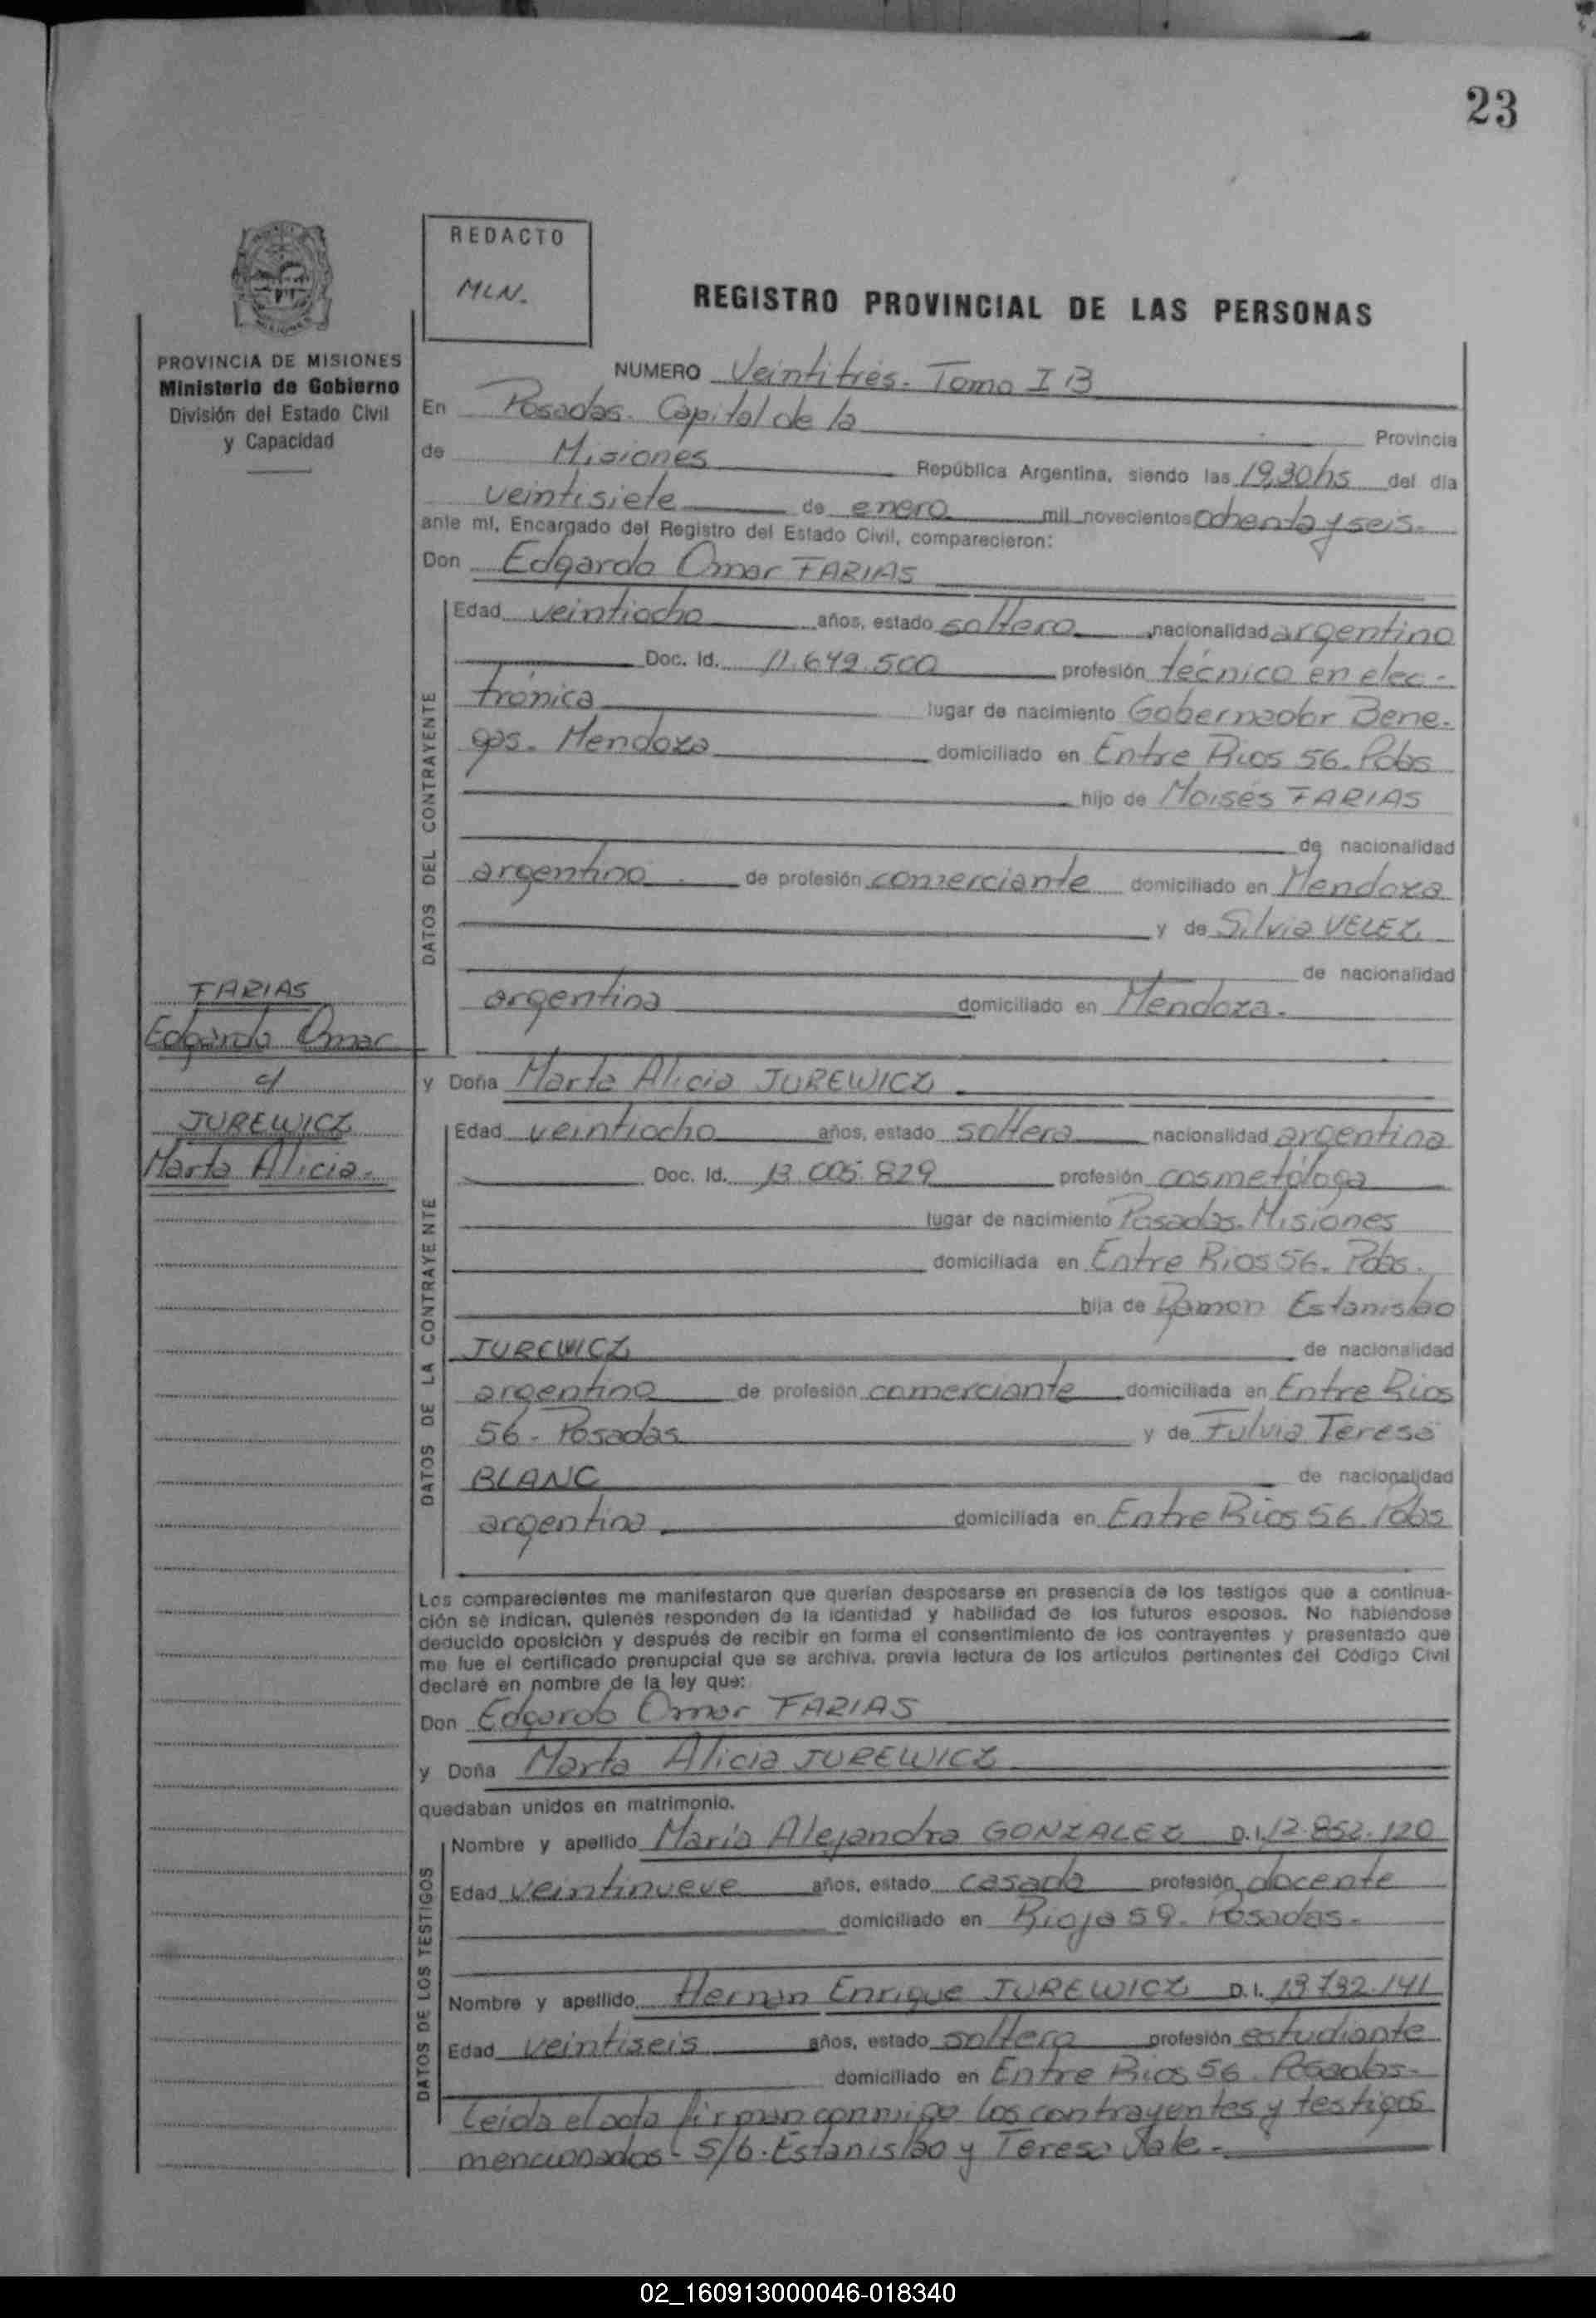 23
REDACTO
MLN.
REGISTRO PROVINCIAL DE LAS PERSONAS
PROVINCIA DE MISIONES
Ministerio de Gobierno
División del Estado Civil
y Capacidad
NUMERO Veintitrés. Tomo I B
En Posadas. Capital de la Provincia
de Misiones República Argentina, siendo las 19,30 hs del día
veintisiete de enero mil novecientos ochenta y seis.
ante mí, Encargado del Registro del Estado Civil, comparecieron:
Don Edgardo Omar FARIAS
DATOS DEL CONTRAYENTE
Edad veintiocho años, estado soltero nacionalidad argentino
Doc. Id. 11.649.500 profesión técnico en elec-
trónica lugar de nacimiento Gobernador Bene-
gas. Mendoza domiciliado en Entre Rios 56. Pdas
hijo de Moisés FARIAS
de nacionalidad
argentino de profesión comerciante domiciliado en Mendoza
y de Silvia VELEZ
de nacionalidad
argentina domiciliado en Mendoza.
FARIAS
Edgardo Omar
c/
JUREWICZ
Marta Alicia.
y Doña Marta Alicia JUREWICZ
DATOS DE LA CONTRAYENTE
Edad veintiocho años, estado soltera nacionalidad argentina
Doc. Id. 13.005.829 profesión cosmetóloga
lugar de nacimiento Posadas. Misiones
domiciliada en Entre Rios 56. Pdas.
hija de Ramon Estanislao
JUREWICZ de nacionalidad
argentino de profesión comerciante domiciliada en Entre Rios
56. Posadas y de Fulvia Teresa
BLANC de nacionalidad
argentina domiciliada en Entre Rios 56 Pdas
Los comparecientes me manifestaron que querían desposarse en presencia de los testigos que a continua-
ción se indican, quienes responden de la identidad y habilidad de los futuros esposos. No habiéndose
deducido oposición y después de recibir en forma el consentimiento de los contrayentes y presentado que
me fue el certificado prenupcial que se archiva, previa lectura de los artículos pertinentes del Código Civil
declaré en nombre de la ley que:
Don Edgardo Omar FARIAS
y Doña Marta Alicia JUREWICZ
quedaban unidos en matrimonio.
DATOS DE LOS TESTIGOS
Nombre y apellido María Alejandra GONZALEZ D.I. 12.852.120
Edad veintinueve años, estado casada profesión docente
domiciliado en Rioja 59. Posadas.
Nombre y apellido Hernan Enrique JUREWICZ D.I. 13.732.141
Edad veintiseis años, estado soltero profesión estudiante
domiciliado en Entre Rios 56. Posadas.
Leida el acta firman conmigo los contrayentes y testigos
mencionados. S/b. Estanislao y Teresa Vale.
02_160913000046-018340